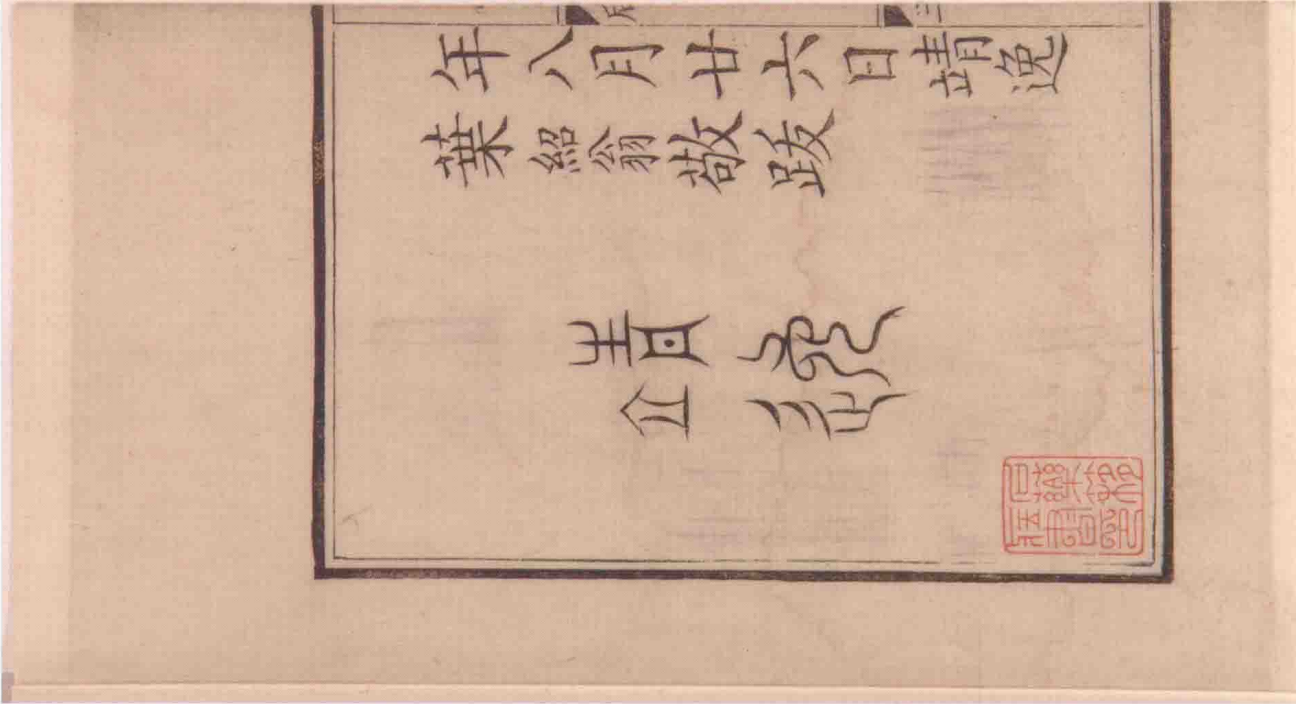 年八月廿六日靖逸
葉紹翁敬跋
靖逸